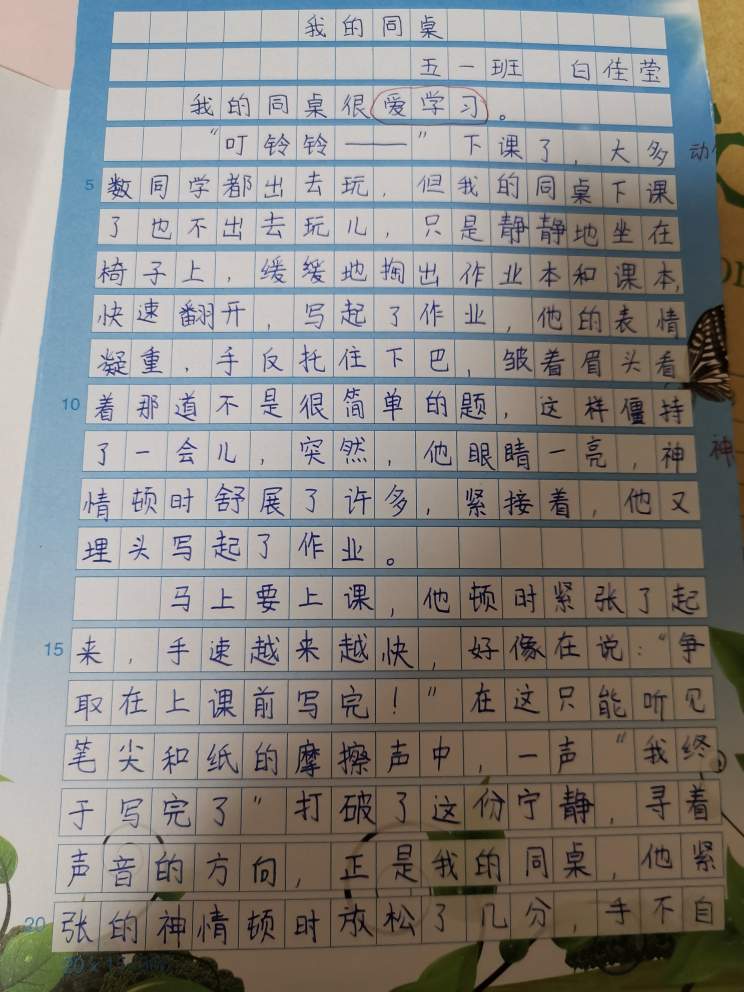 我的同桌
五一班 白佳莹
我的同桌很爱学习。
“叮铃铃——”下课了，大多 动
5 数同学都出去玩，但我的同桌下课
了也不出去玩儿，只是静静地坐在
椅子上，缓缓地掏出作业本和课本，
快速翻开，写起了作业，他的表情
凝重，手反托住下巴，皱着眉头看
10 着那道不是很简单的题，这样僵持
了一会儿，突然，他眼睛一亮，神 神
情顿时舒展了许多，紧接着，他又
埋头写起了作业。
马上要上课，他顿时紧张了起
15 来，手速越来越快，好像在说：“争
取在上课前写完！”在这只能听见
笔尖和纸的摩擦声中，一声“我终
于写完了”打破了这份宁静，寻着
声音的方向，正是我的同桌，他紧
20 张的神情顿时放松了几分，手不自